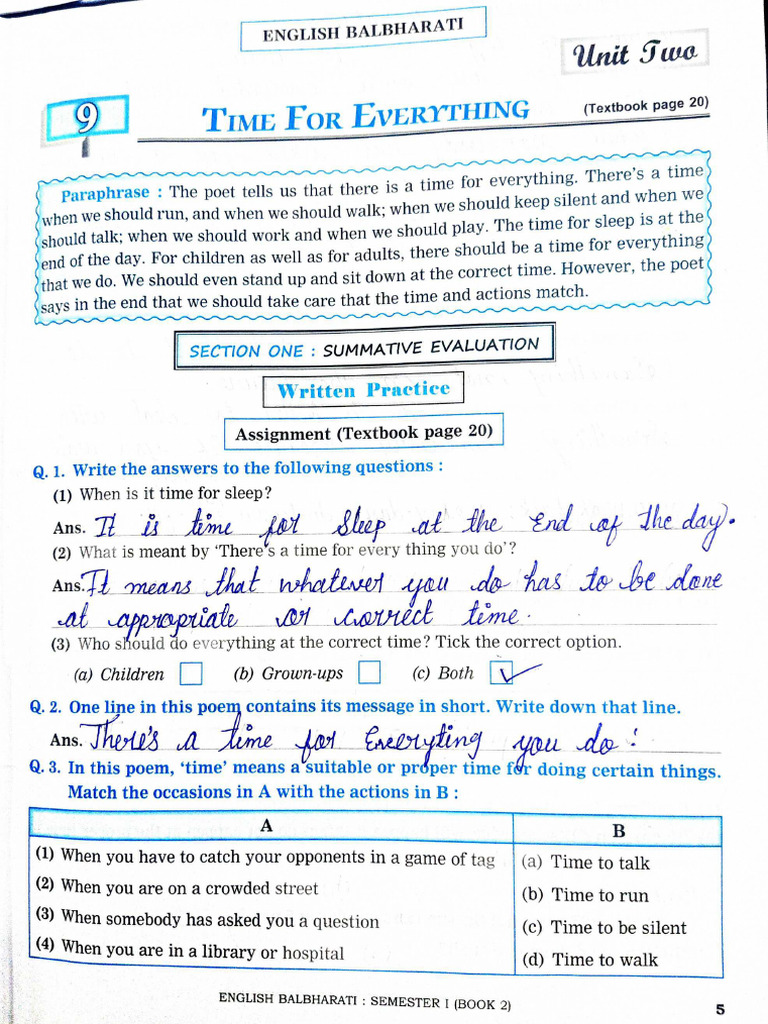 ENGLISH BALBHARATI
Unit Two
9
TIME FOR EVERYTHING
(Textbook page 20)
Paraphrase : The poet tells us that there is a time for everything. There's a time
when we should run, and when we should walk; when we should keep silent and when we
should talk; when we should work and when we should play. The time for sleep is at the
end of the day. For children as well as for adults, there should be a time for everything
that we do. We should even stand up and sit down at the correct time. However, the poet
says in the end that we should take care that the time and actions match.
SECTION ONE : SUMMATIVE EVALUATION
Written Practice
Assignment (Textbook page 20)
Q. 1. Write the answers to the following questions :
(1) When is it time for sleep?
Ans. It is time for Sleep at the End of the day.
(2) What is meant by 'There's a time for every thing you do'?
Ans. It means that whatever you do has to be done
at appropriate or correct time.
(3) Who should do everything at the correct time? Tick the correct option.
(a) Children (b) Grown-ups (c) Both ✓
Q. 2. One line in this poem contains its message in short. Write down that line.
Ans. There's a time for Everyting you do!
Q. 3. In this poem, 'time' means a suitable or proper time for doing certain things.
Match the occasions in A with the actions in B :
A B
(1) When you have to catch your opponents in a game of tag (a) Time to talk
(2) When you are on a crowded street (b) Time to run
(3) When somebody has asked you a question (c) Time to be silent
(4) When you are in a library or hospital (d) Time to walk
ENGLISH BALBHARATI : SEMESTER I (BOOK 2)
5